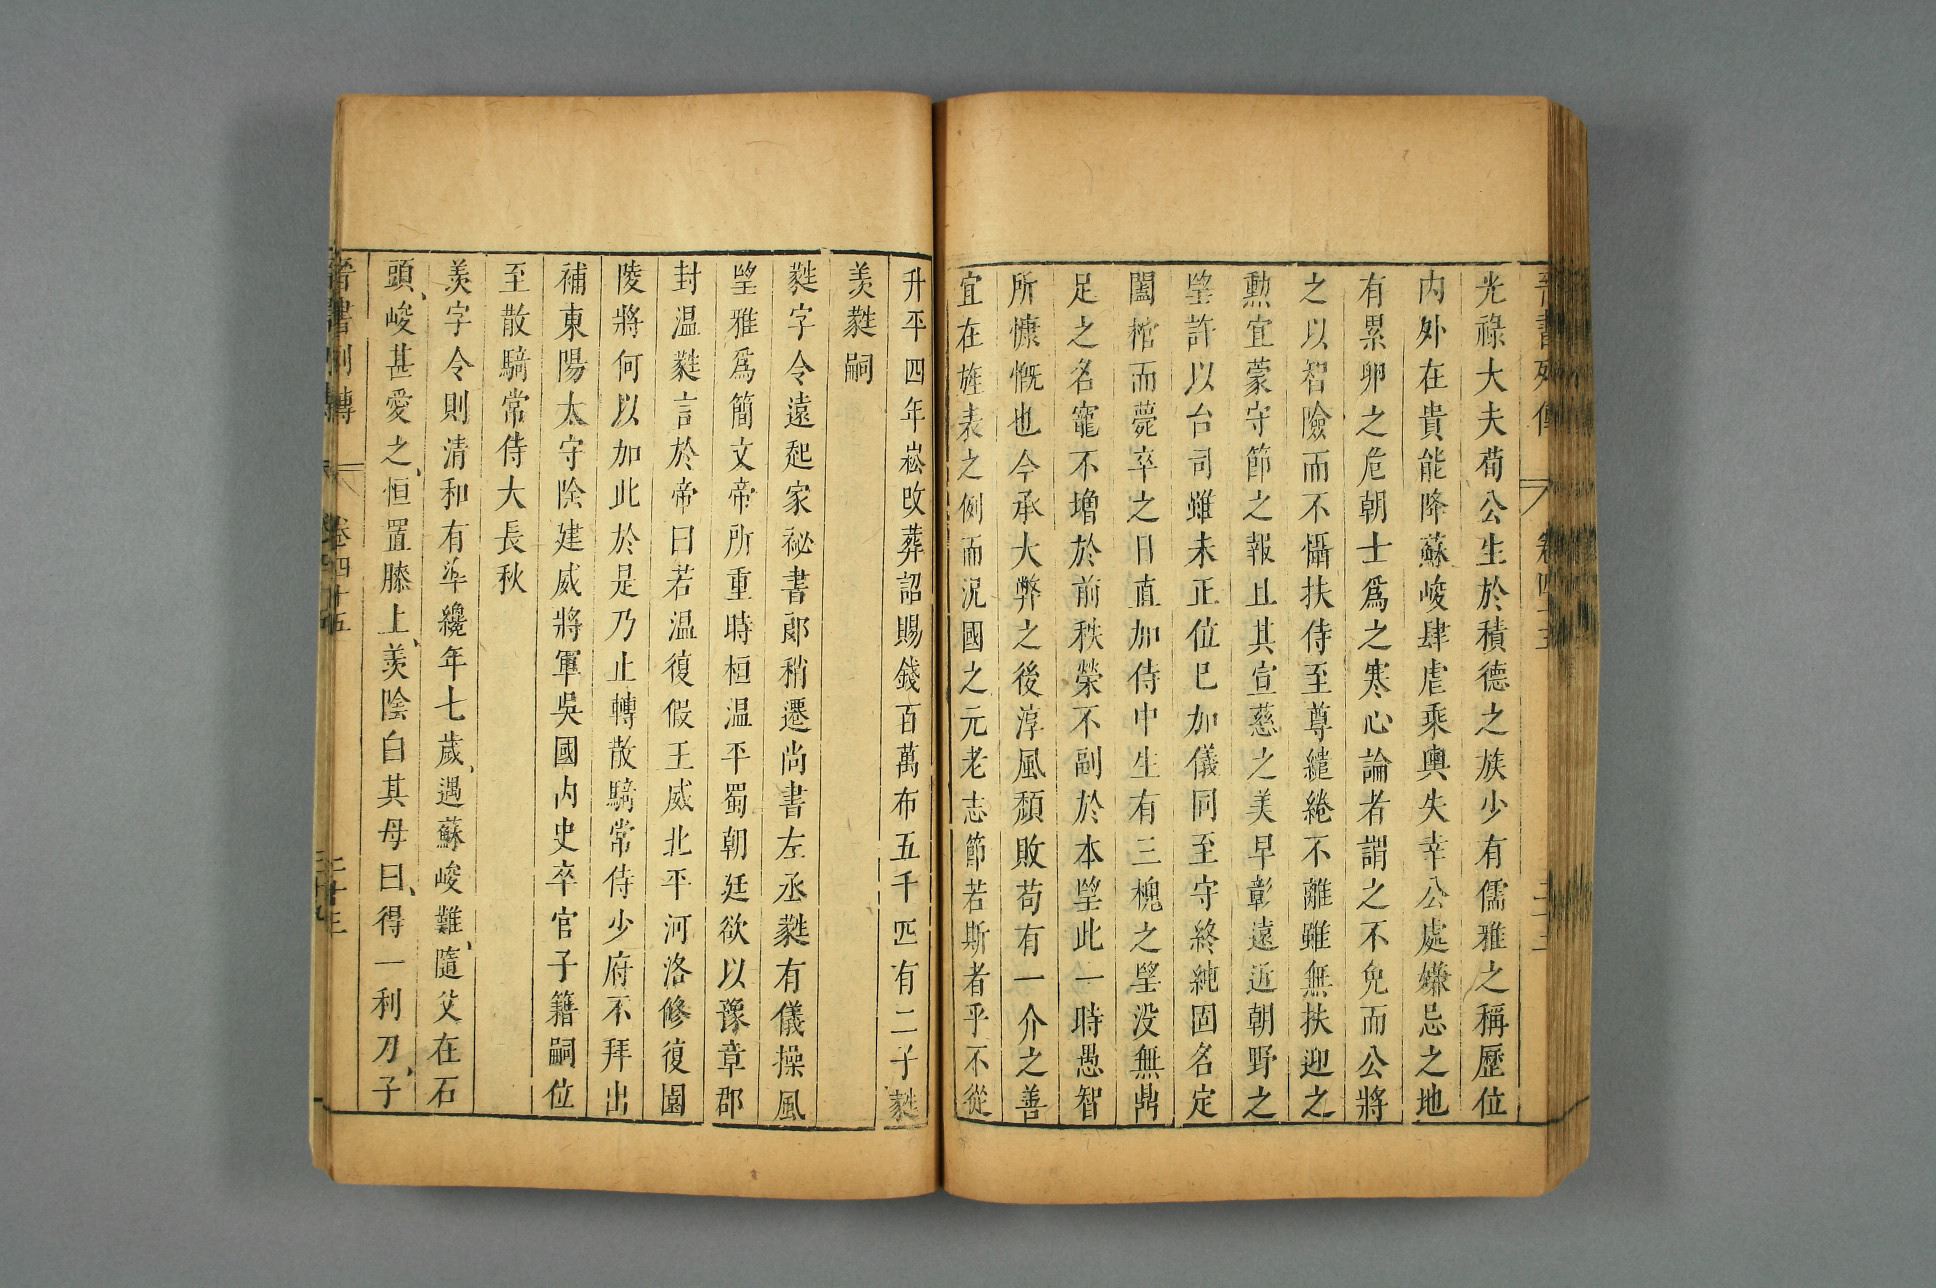 晉書列傳 卷四十五
光祿大夫荀公生於積德之族少有儒雅之稱歷位
內外在貴能降蘇峻肆虐乘輿失幸公處嫌忌之地
有累卵之危朝士爲之寒心論者謂之不免而公將
之以智險而不懾扶侍至尊繾綣不離雖無扶迎之
勲宜蒙守節之報且其宣慈之美早彰遠近朝野之
望許以台司雖未正位已加儀同至守終純固名定
闔棺而薨卒之日直加侍中生有三槐之望没無鼎
足之名寵不增於前秩榮不副於本望此一時愚智
所慷慨也今承大弊之後淳風頹敗苟有一介之善
宜在旌表之例而況國之元老志節若斯者乎不從
升平四年崧改葬詔賜錢百萬布五千匹有二子蕤
羨蕤嗣
蕤字令遠起家祕書郎稍遷尚書左丞蕤有儀操風
望雅爲簡文帝所重時桓温平蜀朝廷欲以豫章郡
封温蕤言於帝曰若温復假王威北平河洛修復園
陵將何以加此於是乃止轉散騎常侍少府不拜出
補東陽太守除建威將軍吳國内史卒官子籍嗣位
至散騎常侍大長秋
羨字令則清和有準纔年七歲、遇蘇峻難、隨父在石
頭、峻甚愛之、恒置膝上、羨陰白其母曰、得一利刀、子
晉書列傳 卷四十五 二十三